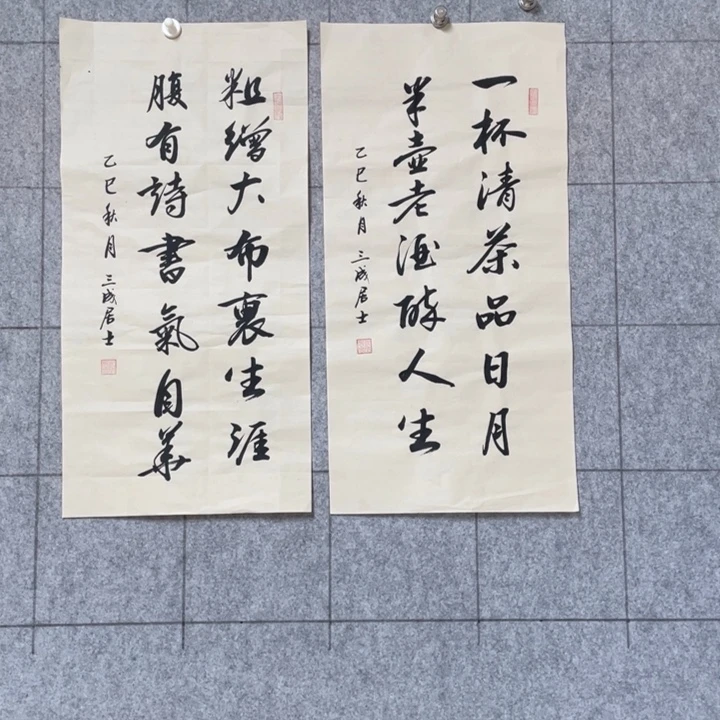 一杯清茶品日月
半壶老酒醉人生
乙巳秋月 三成居士
粗繒大布裹生涯
腹有詩書氣自華
乙巳秋月 三成居士